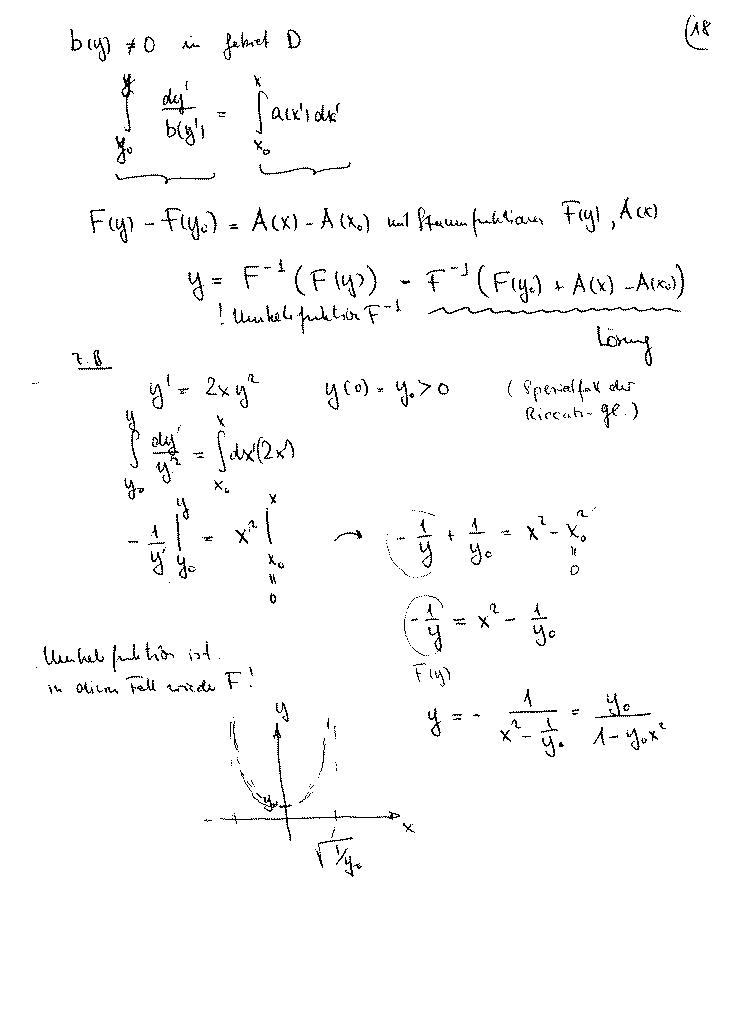 (18
b(y) ≠ 0 in Gebiet D
∫_{y₀}^{y} dy'/b(y') = ∫_{x₀}^{x} a(x') dx'
F(y) - F(y₀) = A(x) - A(x₀) mit Stammfunktionen F(y), A(x)
y = F⁻¹(F(y)) = F⁻¹(F(y₀) + A(x) - A(x₀))
! Umkehrfunktion F⁻¹
Lösung
z.B
y' = 2xy² y(0) = y₀ > 0 (Spezialfall der
Riccati-gl.)
∫_{y₀}^{y} dy'/y'² = ∫_{x₀}^{x} dx'(2x')
- 1/y' |_{y₀}^{y} = x² |_{x₀ = 0}^{x} → - 1/y + 1/y₀ = x² - x₀²
= 0
- 1/y = x² - 1/y₀
F(y)
Umkehrfunktion ist
in diesem Fall wieder F!
y = - 1/(x² - 1/y₀) = y₀/(1 - y₀x²)
y
y₀
x
√1/y₀